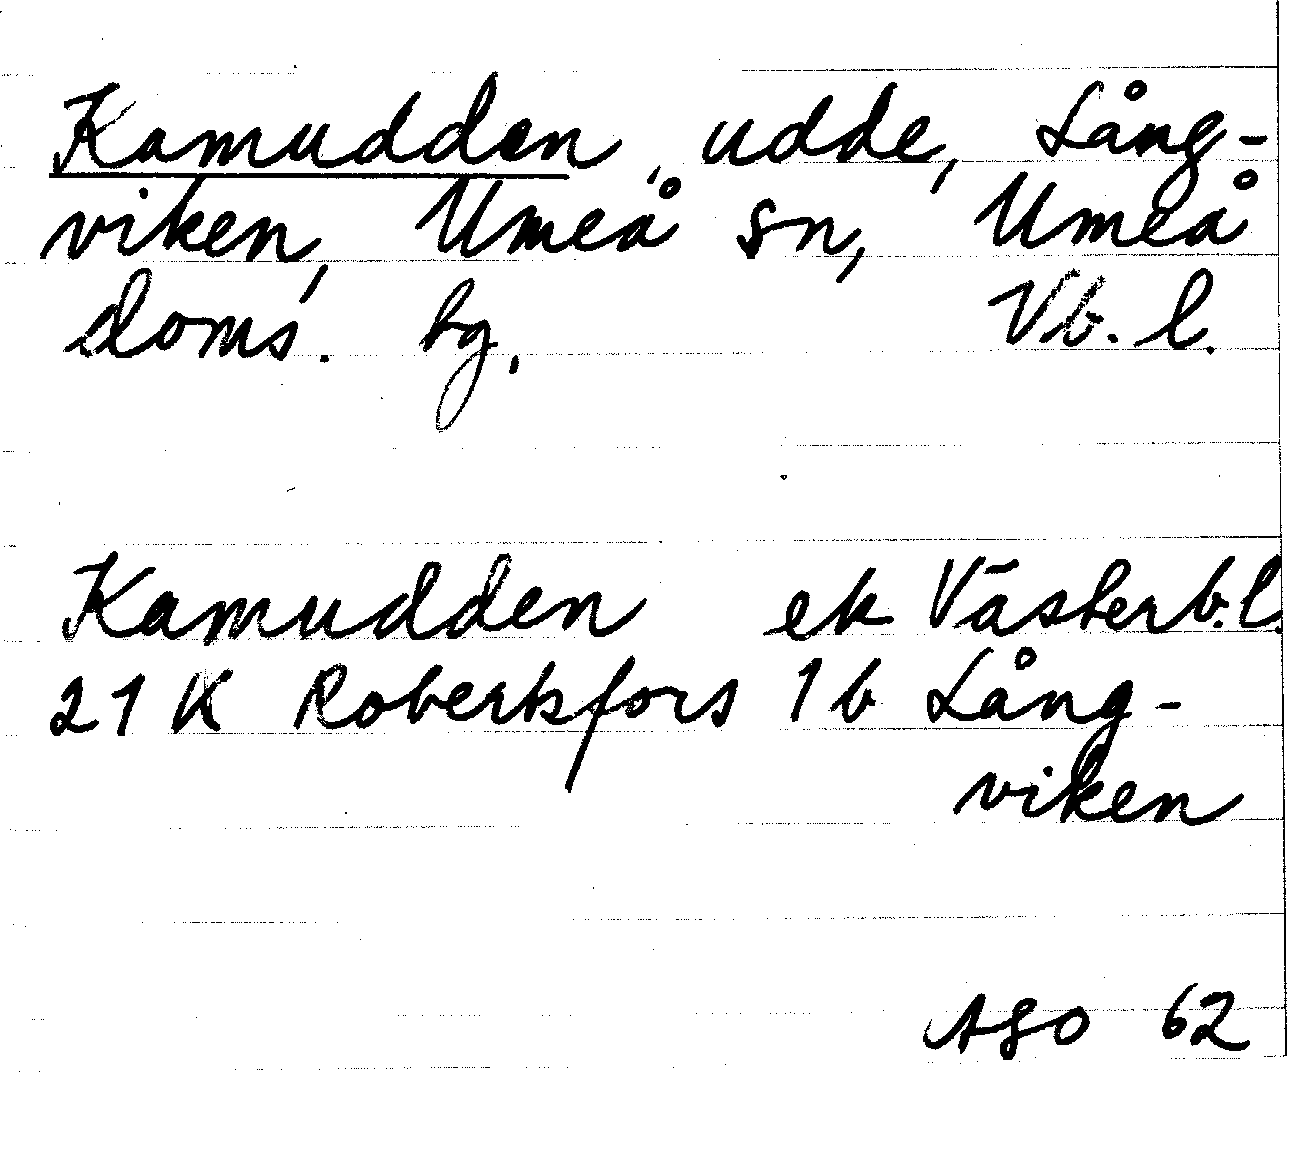 Kamudden, udde, Lång-
viken, Umeå sn, Umeå
doms. hg, Vb. l.
Kamudden ek Västerb.l.
21 K Robertsfors 1 b Lång-
viken
AGO 62